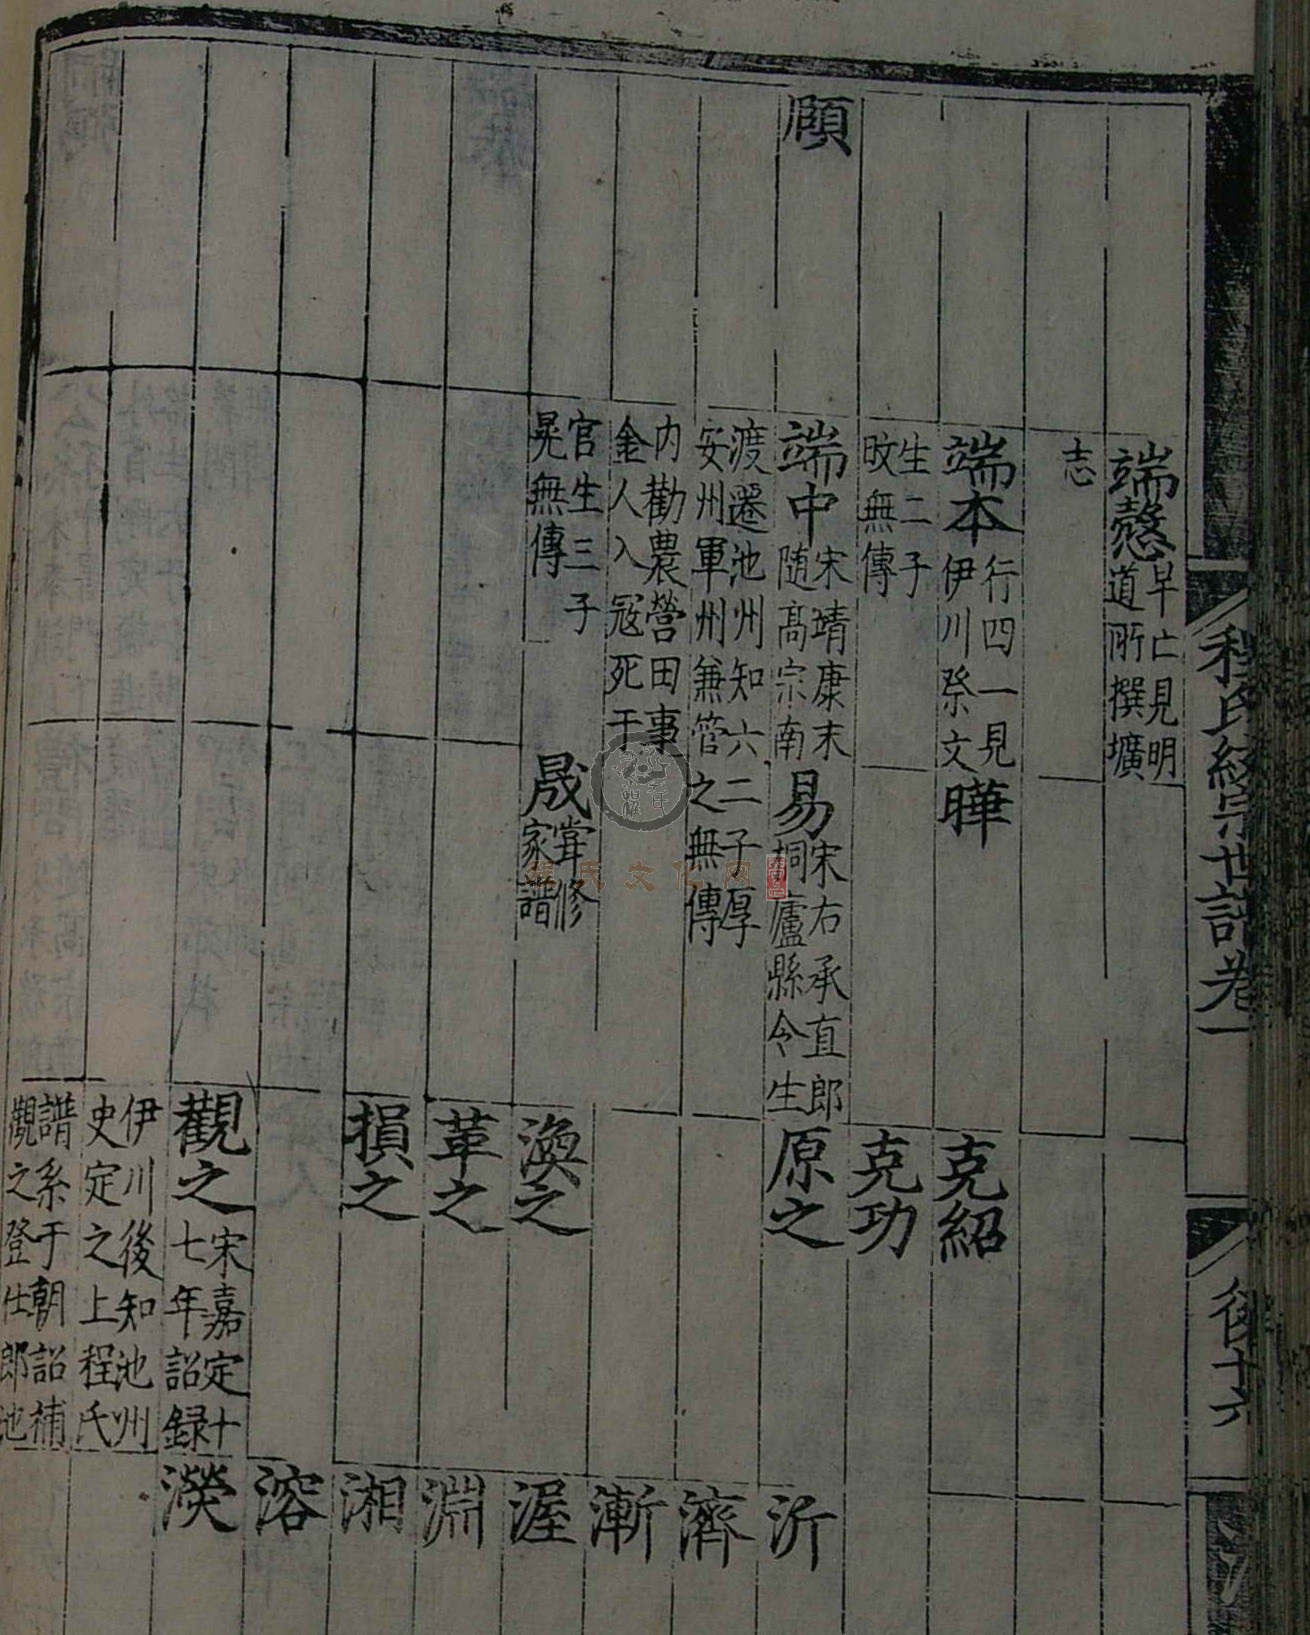 程氏統宗世譜卷一
後十六
端愨早亡見明
道所撰壙
志
端本行四一見
伊川祭文
生二子
旼無傳
頤
端中宋靖康末
隨高宗南
渡遷池州知六
安州軍州兼管
内勸農營田事
金人入冦死于
官生三子
晃無傳
曄
易宋右承直郎
桐廬縣令生
二子厚
之無傳
晟甞修
家譜
克紹
克功
原之
渙之
革之
損之
觀之宋嘉定十
七年詔録
伊川後知池州
史定之上程氏
譜系于朝詔補
觀之登仕郎池
沂
濟
漸
渥
淵
湘
溶
濙
程氏文化网